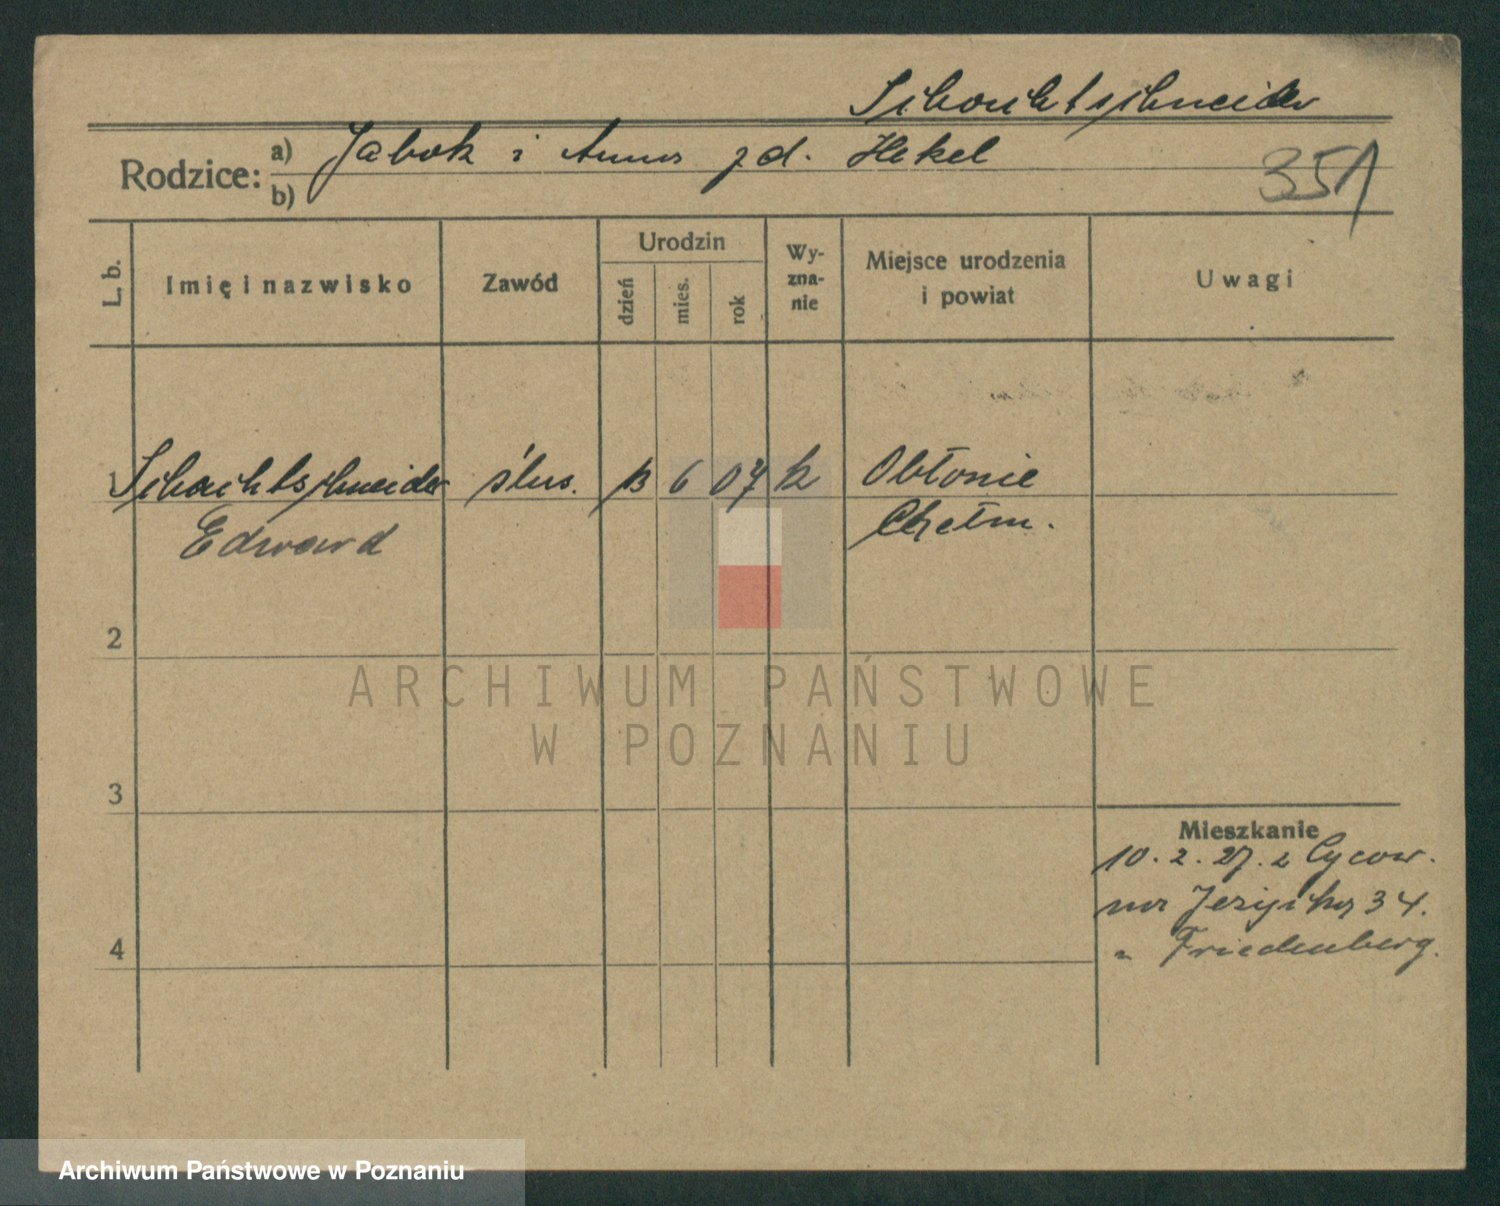 Schachtschneider
Rodzice: a) Jabok i Anna zd. Hekel
b)
351
L. b. Imię i nazwisko Zawód Urodzin dzień mies. rok Wy-zna-nie Miejsce urodzenia i powiat Uwagi
1 Schachtschneider ślus. 13 6 07 k Obłonie
Edward Chełm.
2
ARCHIWUM PAŃSTWOWE
W POZNANIU
3
Mieszkanie
10. 2. 27. z Cycow.
na Jeżycka 34.
4 " Friedenberg.
Archiwum Państwowe w Poznaniu